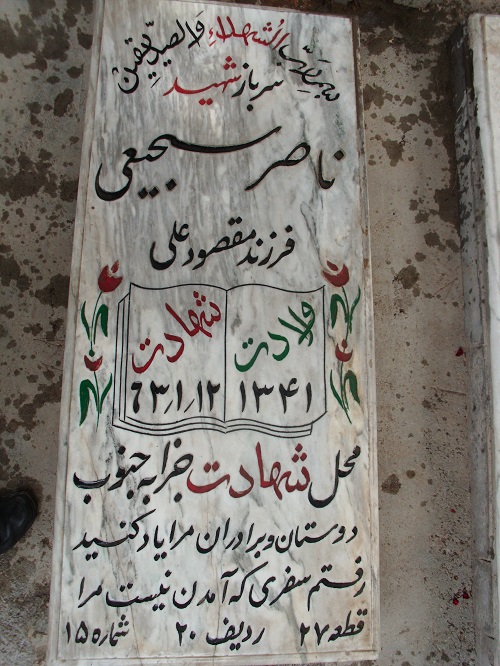 بسم رب الشهداء والصدیقین
سرباز شهید
ناصر سبحیعی
فرزند مقصود علی
ولادت
۱۳۴۱
شهادت
۶۳٫۱٫۱۲
محل شهادت خرابه جنوب
دوستان و برادران مرا یاد کنید
رفتم سفری که آمدن نیست مرا
قطعه ۲۷ ردیف ۲۰ شماره ۱۵